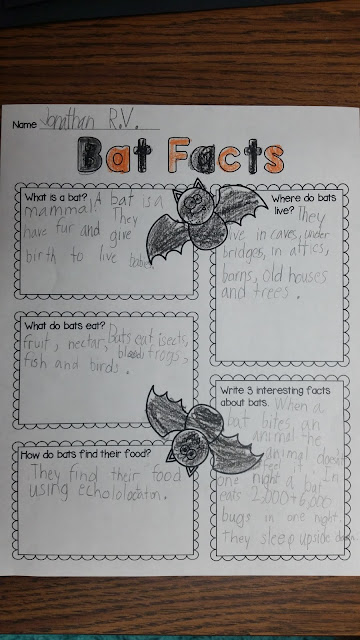 Name Jonathan R.V.
Bat Facts
What is a bat? A bat is a
mammal! They
have fur and give
birth to live babes.
Where do bats
live? They
live in caves, under
bridges, in attics,
barns, old houses
and trees.
What do bats eat?
Bats eat isects,
fruit, nectar, blood, frogs,
fish and birds.
Write 3 interesting facts
about bats. When a
bat bites an
animal the
animal doesn't
feel it. In
one night a bat
eats 2,000 to 6,000
bugs in one night.
They sleep upside down.
How do bats find their food?
They find their food
using echololocaton.